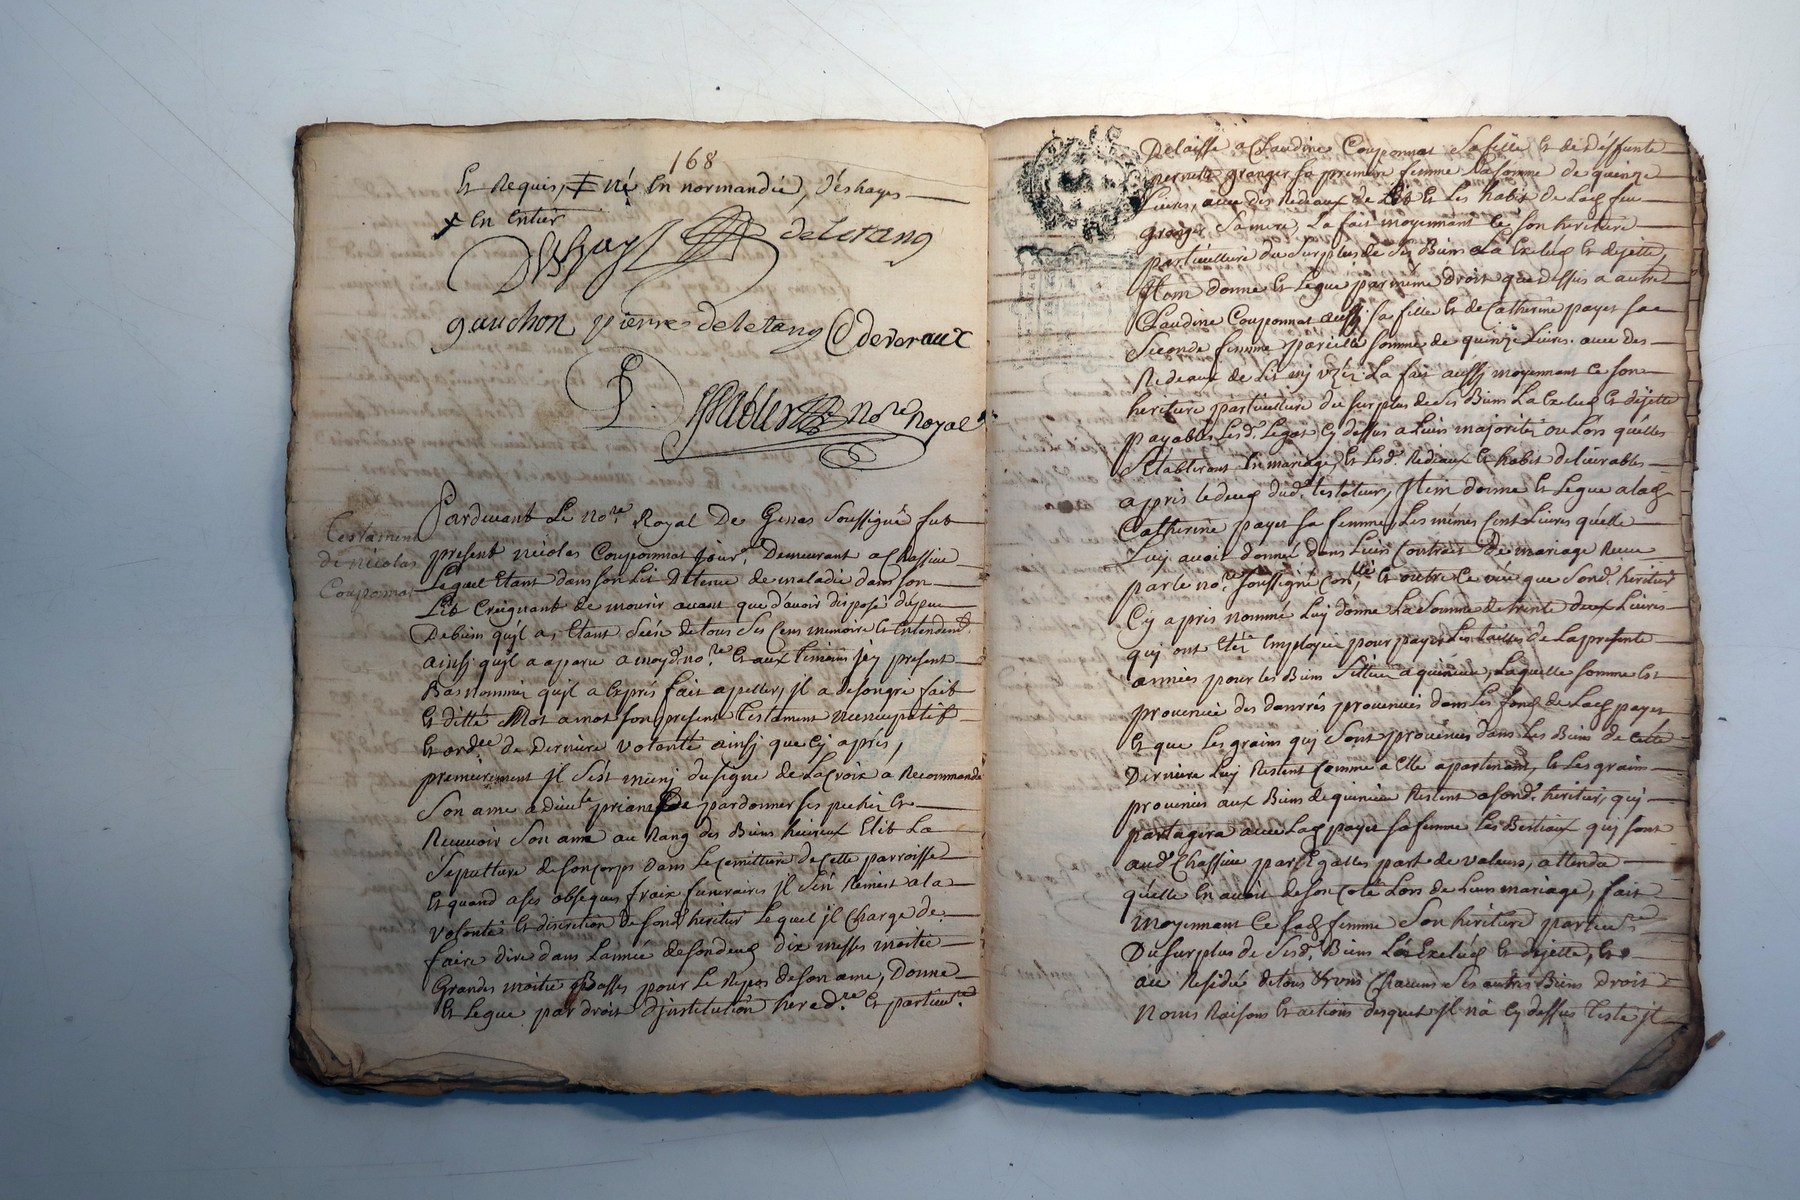 168
Et Requis, né En normandie, Déshayes
En Entier
Deletang
gauchon pierre deletang C devoraux
No.re Royal
Testament
de nicolas
Couponnat
Pardevant Le No.re Royal De Genas Soussigné fut
present nicolas Couponnat Jour.r Demeurant a Chassieu
Lequel Etant dans son Lit détenue de maladie dans son
Lit Creignant de mourir avant que d'avoir disposé du peu
De bien qu'jl a, Etant de tous Ses Cens memoire Et Entendem.t
ainsj qu'jl a aparu a moyd. no.re Et aux Témoins jcy present
Bas nommés qu'jl a Exprés fait apeller, jl a de son gré fait
Et ditté Mot a mot son present Testament nuncupatif
Et ord.ce de Derniere volonté ainsj que Cy aprés,
premierement jl s'est munj du signe de La Croix a Recommandé
Son ame a dieu Le priant De pardonner ses pechés Et
Recevoir Son ame au Rang des Biens heureux Elit La
Sépulture de son Corps Dans Le Cemittiere de Cette parroisse
Et quand a ses obseques fraix funeraires jl S'en Remest a la
volonté Et discretion de sond. heritier Lequel jl Charge de
faire dire dans Lannée de son deces dix messes moitié
Grandes moitié Basses pour Le Repos de son ame, Donne
Et Legue par droit D'jnstitution hered.re Et particul.re
Delaisse a Claudine Couponnat Sa fille Et de Deffunte
granger sa premiere femme La Somme de quinze
Livres, avec des Redeaux de Lit Et Les habit de Lad. feu
granger Sa mere, La fait moyennant Ce son heritiere
particulliere du Surplus de Ses Biens La Exclud Et dejette,
Jtem donne Et Legue par même droit que dessus a autre
Claudine Couponnat aussj sa fille Et de Catherine payet sa
Seconde femme pareille somme de quinze Livres. avec des
Redeaux de Lit La fait aussj moyennant Ce son
heritiere particulliere du surplus de Ses Biens La Exclud Et dejette
payables Lesd. Legat Cy dessus a Leurs majorités ou Lors quelles
S'etabliront En mariage, Et Lesd. Redeaux Et habit delivrables
apris le deces dud. testateur, Jtem donne Et Legue a lad.
Catherine payet sa femme, Les mêmes Cent Livres quelle
Luj avoit donné dans Leurs Contract De mariage Receu
par Le no.re Soussigné Et outre Ce veu que Sond. heritier
Cy apris nommé Luj donne La Somme de trente deux Livres
quj ont Eté Employée pour payer Les tailles de La presente
année pour les Biens Laquelle somme Est
provenüe des danrrés provenües dans Les fond de Lad. payet
Et que Les grains quj Sont provenües dans Les Biens de Cette
Derniere Luj Restent Comme a Elle apartenant, Et Les grains
provenües aux Biens de Restent a sond. heritier, quj
partagera avec Lad. payet sa femme Les Bestiaux quj sont
aud. Chassieu par Egalles part de valeurs, attendu
quelle En avoit de son Coté Lors de Leurs mariage, fait
moyennant Ce Lad. femme Son heritiere particul.re
Du surplus de Sesd. Biens La Exclud Et dejette, Et
au Residü de tous Et uns Chacuns Ses autres Biens droit
Noms Raisons Et actions desquels jl n'a Cy dessus testé jl